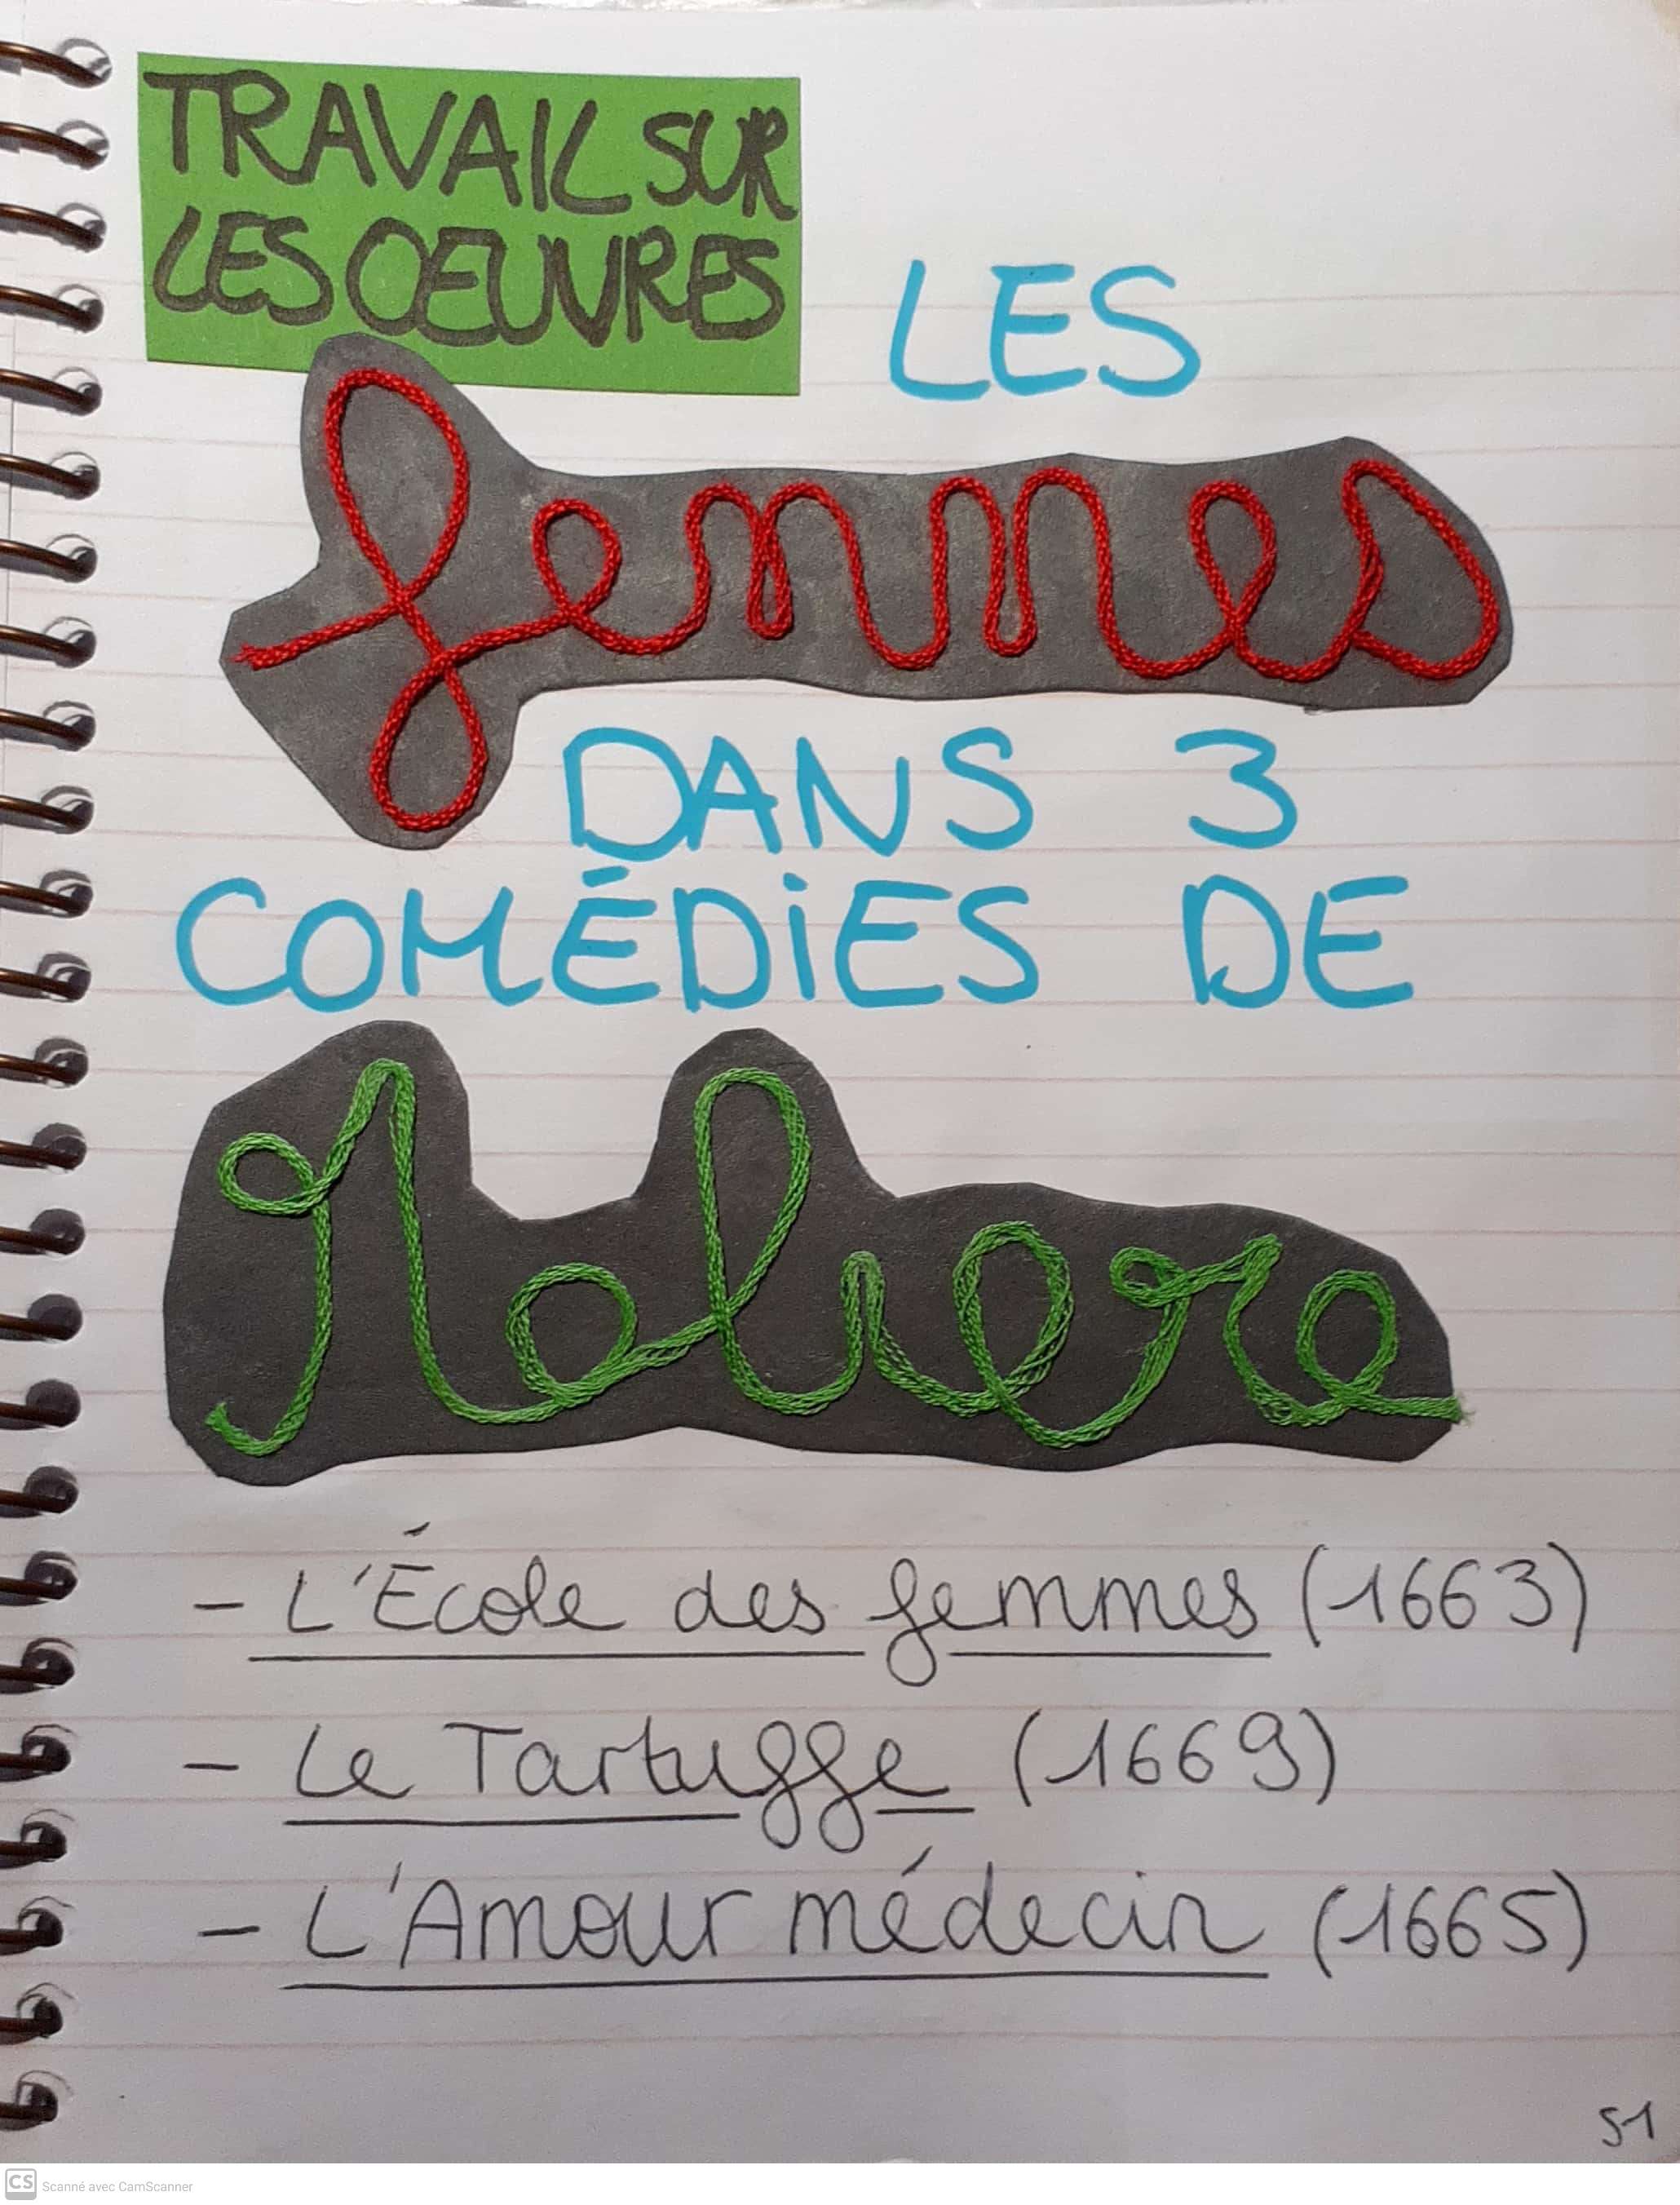 TRAVAIL SUR
LES OEUVRES
LES
femmes
DANS 3
COMÉDIES DE
Moliere
- L'École des femmes (1663)
- Le Tartuffe (1669)
- L'Amour médecin (1665)
51
CS Scanné avec CamScanner